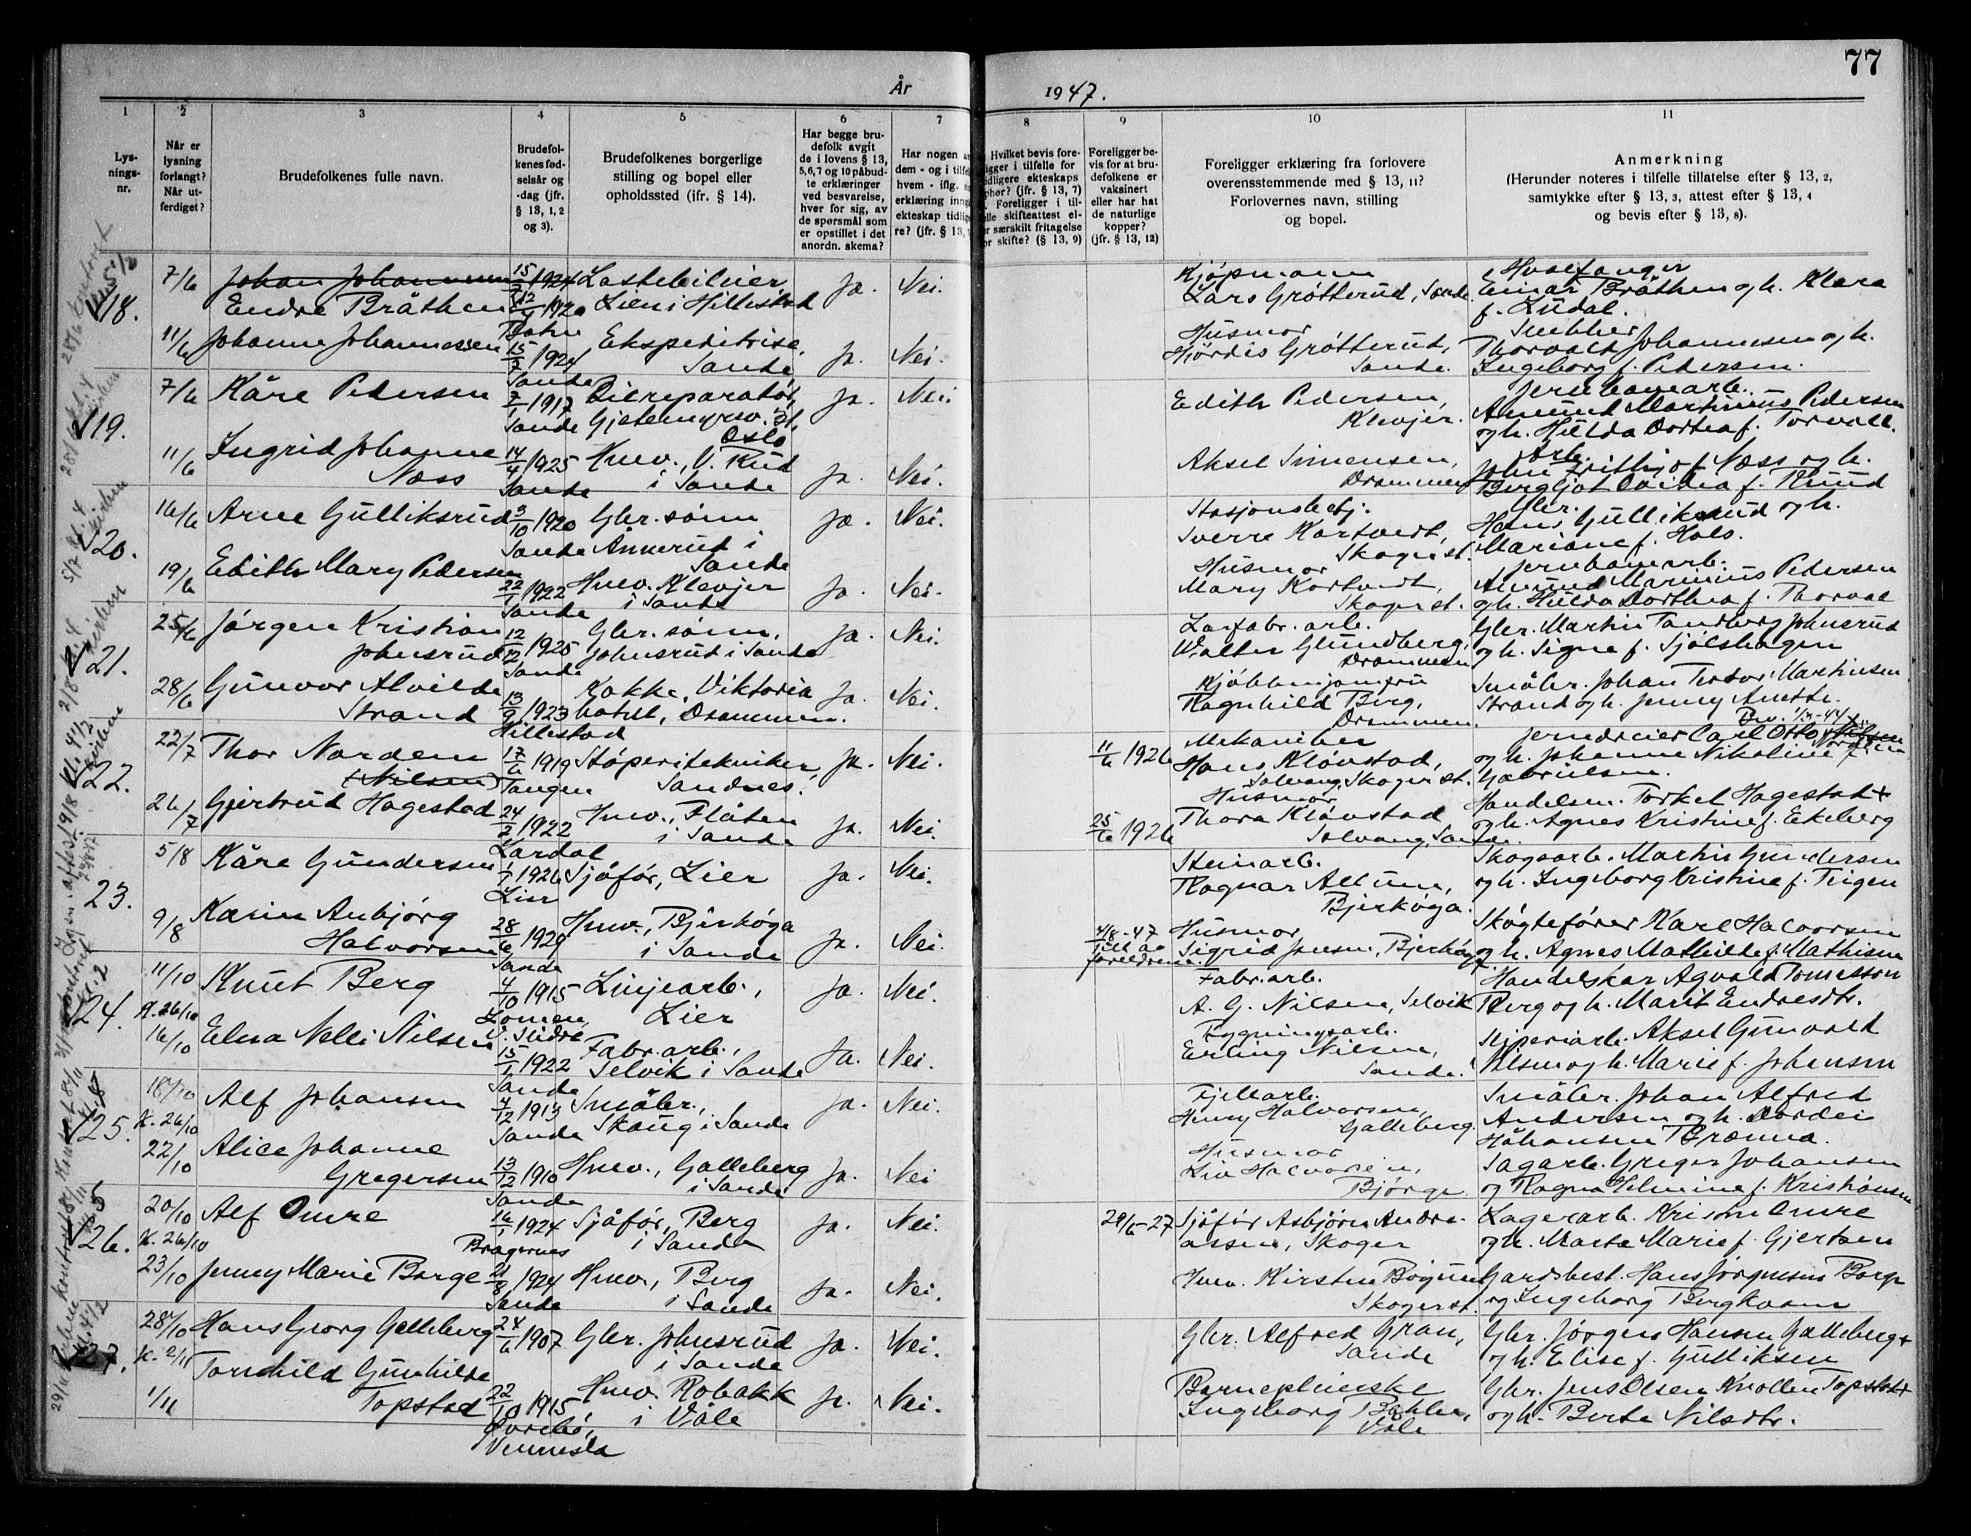 77
År 1947.
1 2 3 4 5 6 7 8 9 10 11
Lysningsnr.
Når er lysning forlangt? Når utferdiget?
Brudefolkenes fulle navn.
Brudefolkenes fødselsår og -dag (jfr. § 13, 1, 2 og 3).
Brudefolkenes borgerlige stilling og bopel eller opholdssted (ifr. § 14).
Har begge brudefolk avgit de i lovens § 13, 5, 6, 7 og 10 påbudte erklæringer ved besvarelse, hver for sig, av de spørsmål som er opstillet i det anordn. skema?
Har nogen
dem - og i tilfe
hvem - iflg.
erklæring inng
ekteskap tidlig
re? (jfr. § 13,
Hvilket bevis fore-
ligger i tilfelle for
tidligere ekteskaps
opher? (jfr. § 13, 7)
Foreligger i til-
felle skifteattest el-
er særskilt fritagelse
or skifte? (§ 13, 9)
Foreligger bevis for at brudefolkene er vaksinert eller har hat de naturlige kopper? (jfr. § 13, 12)
Foreligger erklæring fra forlovere overensstemmende med § 13, 11? Forlovernes navn, stilling og bopel.
Anmerkning
(Herunder noteres i tilfelle tillatelse efter § 13, 2, samtykke efter § 13, 3, attest efter § 13, 4 og bevis efter § 13, 8).
18. 7/6 Johan Johannessen
Endre Bråthen 1920 Lastebileier, Lien i Hillestad Ja. Nei.
Kjøpmann Lars Grøtterud, Sande
Hvalfanger Einar Bråthen og h. Klara f. Ludal.
11/6 Johanne Johannessen 15/7 1924 Sande Ekspeditrise, Sande Ja. Nei.
Husmor Hjørdis Grøtterud, Sande.
Thorvald Johannessen og h. Ingeborg f. Pedersen.
19. 7/6 Kåre Pedersen 7/1 1917 Sande Bilreparatør, Gjetemyrsv. Oslo Ja. Nei
Edith Pedersen, Klevjer.
Jernbanearb. Amund Martinius Pedersen og h. Hulda Dorthea f. Torvall.
11/6 Ingrid Johanne Næss 14/4 1925 Sande Husv., V. Rud i Sande Ja. Nei.
Aksel Simensen, Drammen
Arb. John Fritjof Næss og h. Bergljot f. Ruud
20. 16/6 Arne Gulliksrud 3/10 1920 Sande Gbr. sønn Ånnerud i Sande Ja. Nei.
Stasjonsbetj. Sverre Kortvedt, Skoger st.
Gbr. Hans Gulliksrud og h. Mariane f. Hals.
19/6 Edith Mary Pedersen 22/1 1922 Sande Husv. Klevjer i Sande Ja. Nei.
Husmor Mary Kortvedt, Skoger st.
Jernbanearb. Amund Marinius Pedersen og h. Hulda Dorthea f. Thorval
21. 25/6 Jørgen Kristian Johnsrud 12/12 1925 Sande Gbr. sønn, Johnsrud i Sande Ja. Nei.
Lasfabr. arb. Walter Glundberg, Drammen
Gbr. Martin Tandberg Johnsrud og h. Signe f. Sjølshagen
28/6 Gunvor Alvilde Strand 13/9 1923 Hillestad Kokke, Viktoria hotel, Drammen. Ja. Nei.
Kjøkkenjomfru Ragnhild Berg, Drammen.
Småbr. Johan Teodor Martinsen Strand og h. Jenny Anette.
22. 22/7 Thor Nordem (Nilsen) 17/6 1919 Tangen Støperitekniker, Sandnes. Ja. Nei. 11/6 1926
Mekaniker Hans Kløvstad, Solvang, Skoger st.
Jerndreier Carl Otto og h. Johanne Nikoline f. Gabrielsen.
26/7 Gjertrud Hagestad 24/2 1922 Lardal Husv., Flåten i Sande Ja. Nei. 25/6 1926
Husmor Thora Kløvstad, Solvang, Sande.
Handelsm. Torkel Hagestad + og h. Agnes Kristine f. Ekeberg
23. 5/8 Kåre Gundersen 1/1 1926 Lier Sjåfør, Lier Ja. Nei.
Steinarb. Ragnar Allum, Bjerkøya.
Skogsarb. Martin Gundersen og h. Ingeborg Kristine f. Teigen
9/8 Karin Anbjørg Halvorsen 28/6 1929 Sande Husv., Bjerkøya i Sande Ja. Nei. 4/8-47 Till. av foreldrene
Husmor Sigrid Jensen, Bjerkøya
Skøytefører Karl Halvorsen og h. Agnes Mathilde f. Mathisen
24. 11/10 Knut Berg 4/10 1915 Lomen, V. Slidre Linjearb., Lier Ja. Nei.
K. 26/10
Fabr. arb. A. G. Nilsen, Selvik
Handelskar Agvald Tomesson Berg og h. Marit Endresdtr.
16/10 Elna Nelli Nilsen 15/1 1922 Sande Fabr. arb., Selvik i Sande Ja. Nei.
Bygningsarb. Erling Nilsen, Sande.
Sliperiarb. Aksel Gunvald Nilsen og h. Marie f. Johansen
25. 18/10 Alf Johansen 4/12 1913 Sande Småbr., Skaug i Sande Ja. Nei.
K. 26/10
Fjellarb. Henry Halvorsen, Galleberg.
Småbr. Johan Alfred Andersen og h. Dordei Håhansen Brenna.
22/10 Alice Johanne Gregersen 13/12 1910 Sande Husv., Galleberg i Sande Ja. Nei
Husmor Liv Halvorsen, Bjørge.
Sagarb. Greger Johansen og Ragna Helmine f. Kristiansen
26. 20/10 Alf Omre 16/1 1924 Bragernes Sjåfør, Berg i Sande Ja. Nei. 29/6-27
K. 26/10
Sjåfør Asbjørn Andreassen, Skoger
Lagerarb. Kristen Omre og h. Marta Marie f. Gjertsen
23/10 Jenny Marie Borge 21/8 1924 Sande Husv., Berg i Sande Ja. Nei.
Husv. Kirsten Bøgum Skoger st.
Gardsbest. Hans Jørgensen Borge og Ingeborg Bergkvam
27. 28/10 Hans Georg Galleberg 24/6 1907 Gbr. Johnsrud i Sande Ja. Nei.
K. 2/11
Gbr. Alfred Gran, Sande
Gbr. Jørgen Hansen Galleberg + og h. Elise f. Gulliksen
1/11 Torhild Gunhilde Topstad 22/10 1915 Øvrebø, Vennesla Husv. Robakk i Våle Ja. Nei.
Barnepleierske Ingeborg Våle
Gbr. Jens Olsen Knollen Topstad + og h. Berte Nilsdtr.